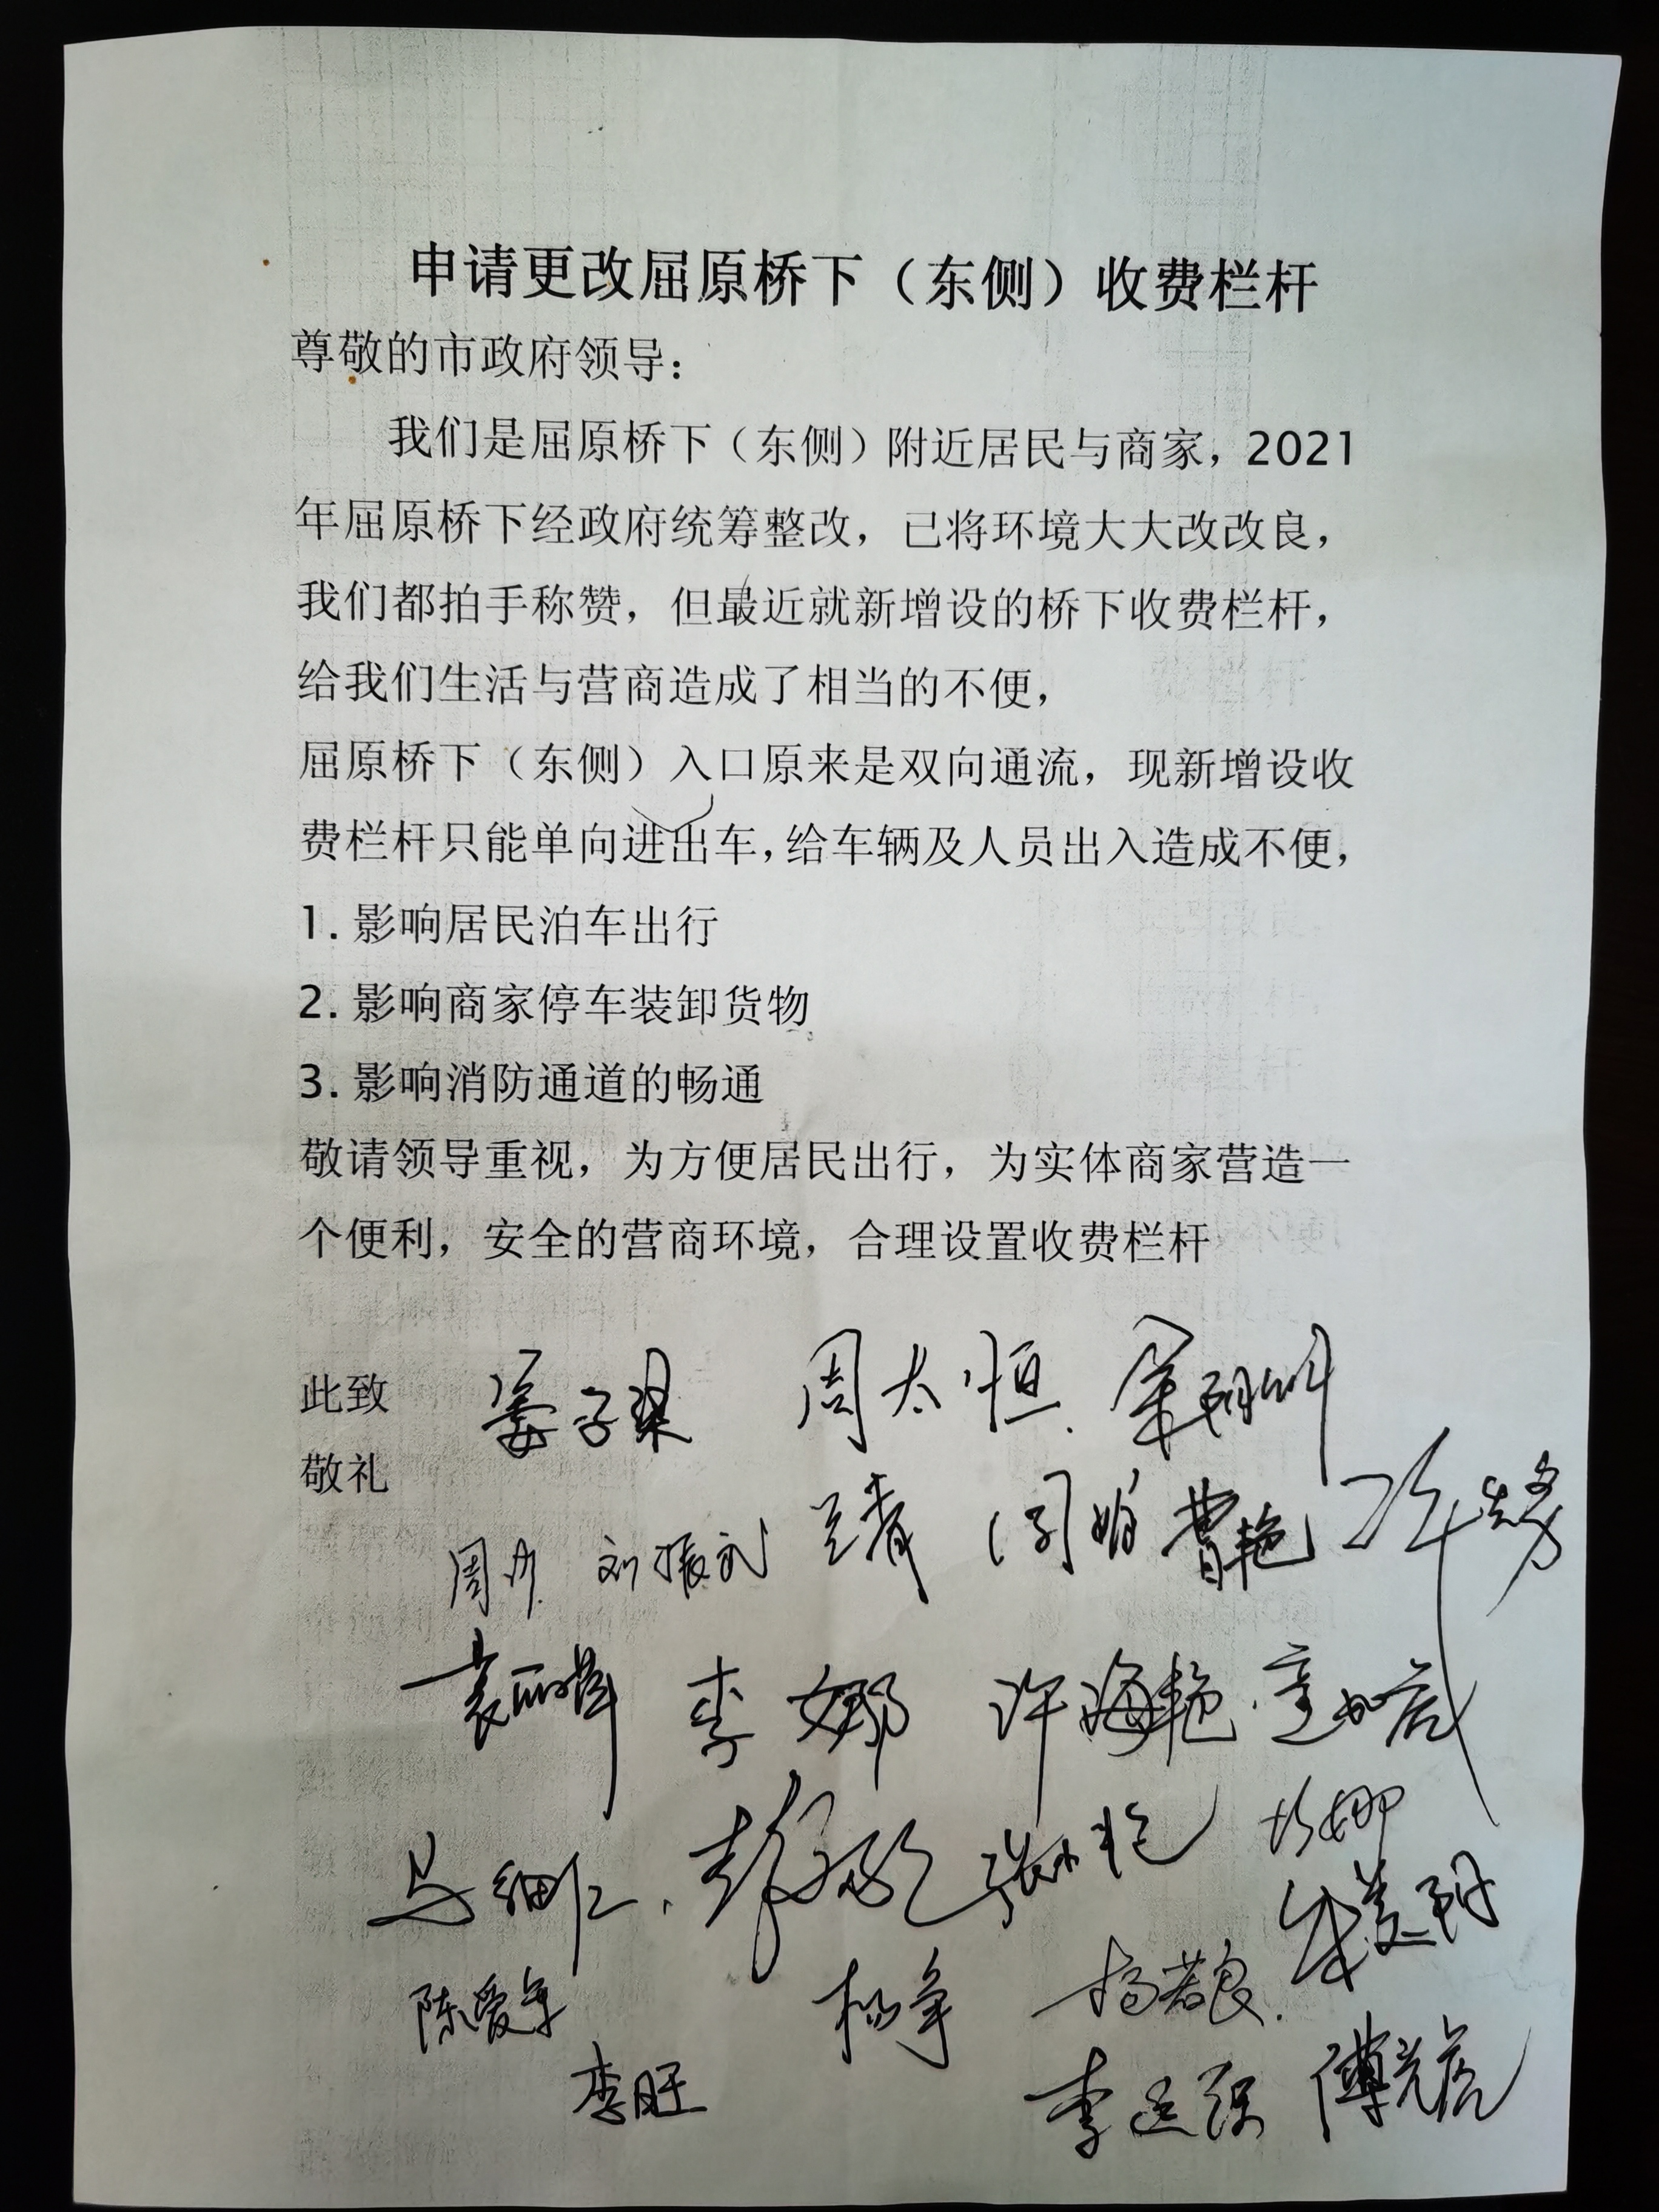 申请更改屈原桥下（东侧）收费栏杆
尊敬的市政府领导：
我们是屈原桥下（东侧）附近居民与商家，2021
年屈原桥下经政府统筹整改，已将环境大大改改良，
我们都拍手称赞，但最近就新增设的桥下收费栏杆，
给我们生活与营商造成了相当的不便，
屈原桥下（东侧）入口原来是双向通流，现新增设收
费栏杆只能单向进出车，给车辆及人员出入造成不便，
1. 影响居民泊车出行
2. 影响商家停车装卸货物
3. 影响消防通道的畅通
敬请领导重视，为方便居民出行，为实体商家营造一
个便利，安全的营商环境，合理设置收费栏杆
此致 周太恒
敬礼
刘振武 曹艳
李娜 许海艳
陈爱年
李旺